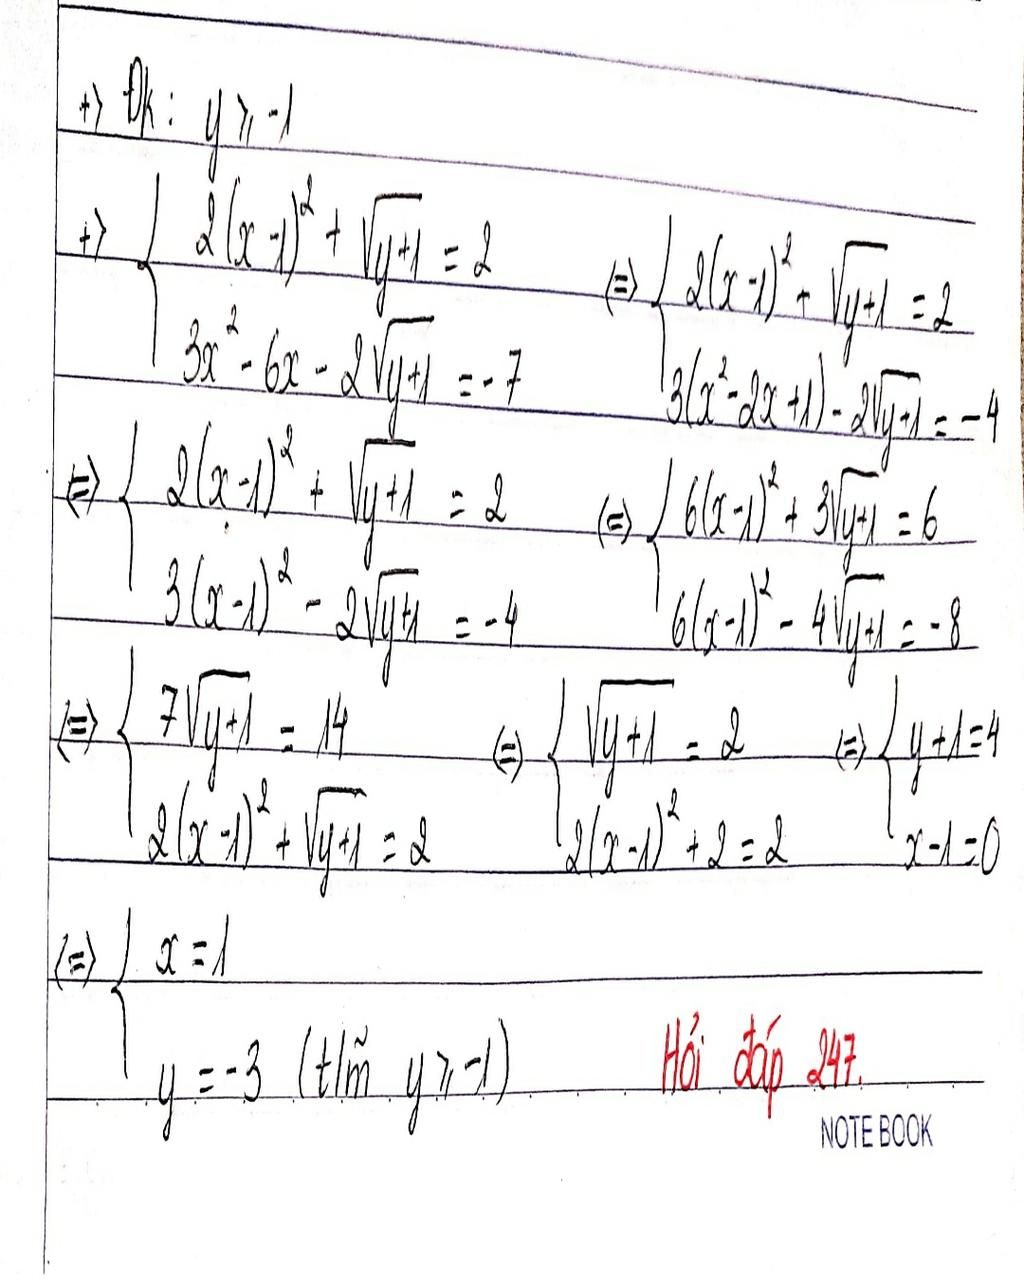 +> Đk: y ⩾ -1
+> { 2(x-1)² + √(y+1) = 2 (=) { 2(x-1)² + √(y+1) = 2
3x² - 6x - 2√(y+1) = -7 3(x²-2x+1) - 2√(y+1) = -4
(=) { 2(x-1)² + √(y+1) = 2 (=) { 6(x-1)² + 3√(y+1) = 6
3(x-1)² - 2√(y+1) = -4 6(x-1)² - 4√(y+1) = -8
(=) { 7√(y+1) = 14 (=) { √(y+1) = 2 (=) { y+1=4
2(x-1)² + √(y+1) = 2 2(x-1)² + 2 = 2 x-1=0
(=) { x = 1
y = -3 (t/m̃ y ⩾ -1) Hỏi đáp 247.
NOTE BOOK